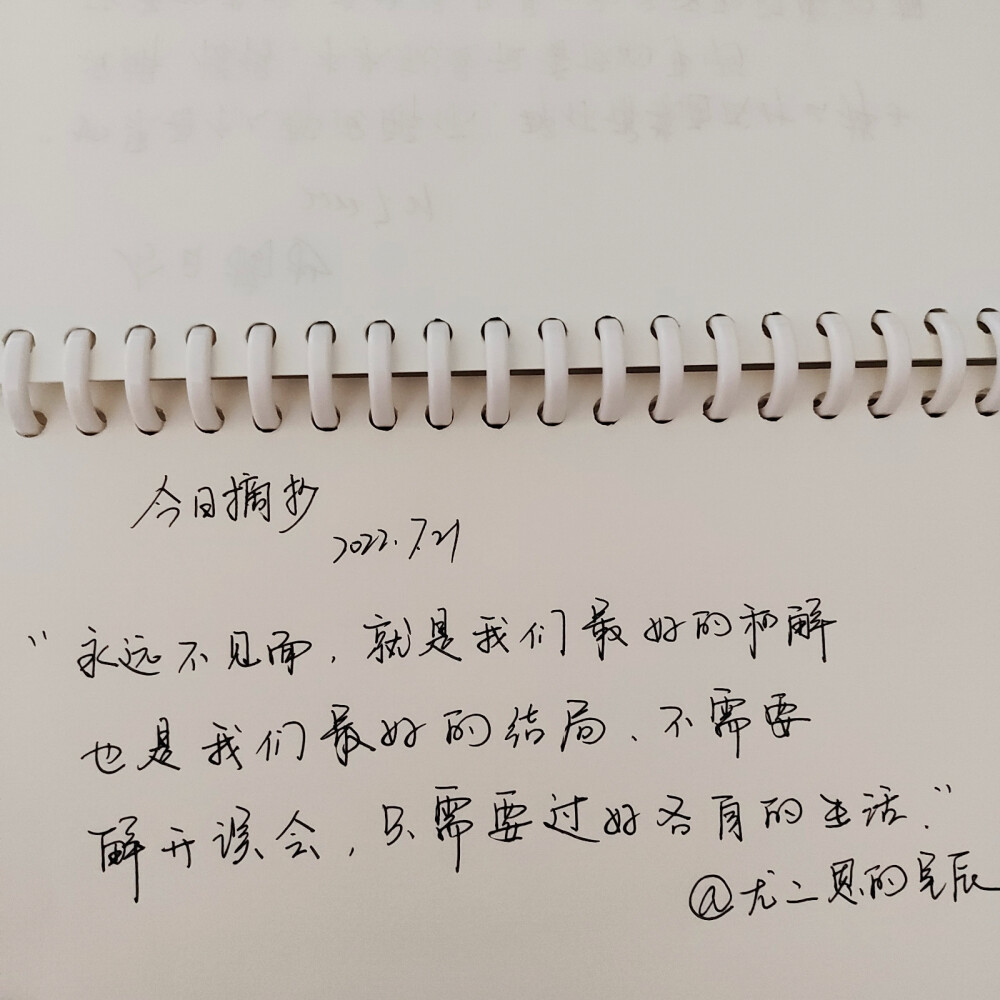 今日摘抄
2022.7.21
“永远不见面，就是我们最好的和解
也是我们最好的结局、不需要
解开误会，只需要过好各自的生活.”
@尤二恩的星辰